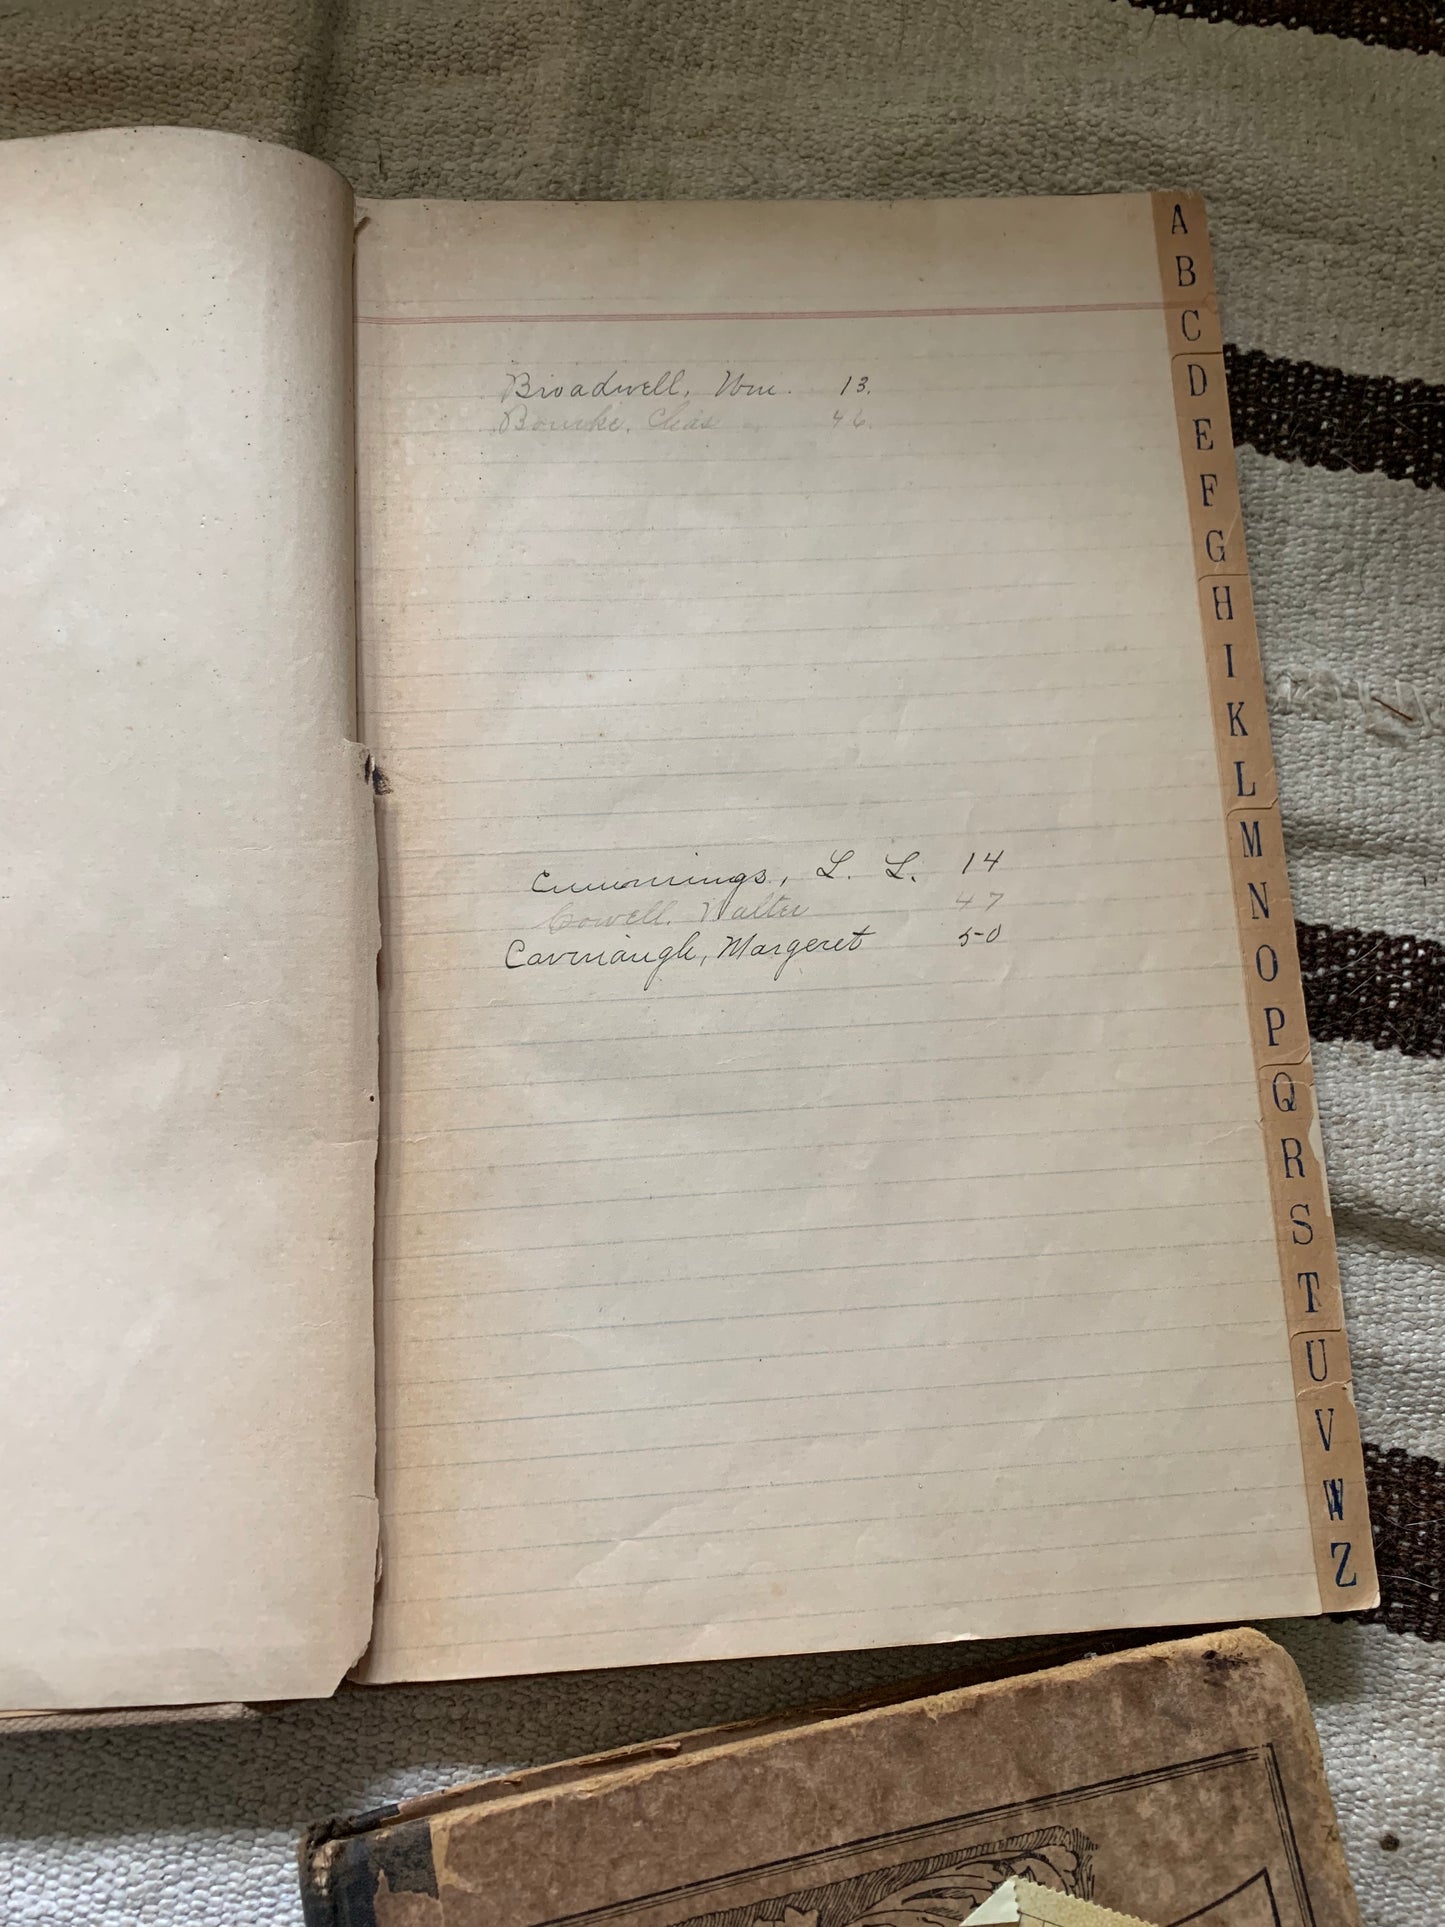 Broadwell, Wm. 13.
Bourke, Chas 46.
Cummings, L. L. 14
Cowell, Walter 47
Cavenaugh, Margeret 50
A
B
C
D
E
F
G
H
I
K
L
M
N
O
P
Q
R
S
T
U
V
W
Z